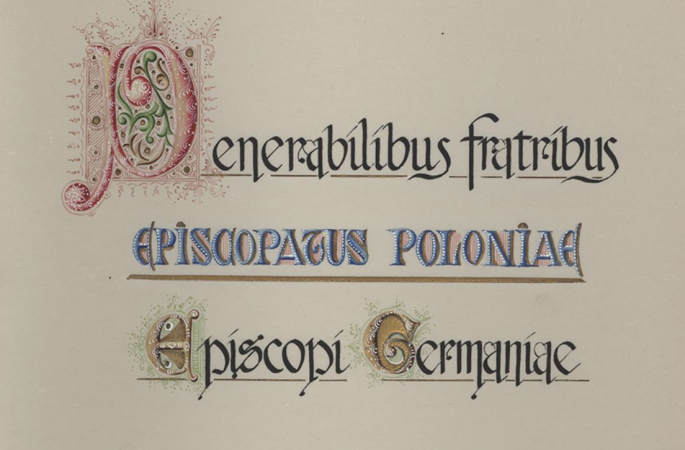 Venerabilibus fratribus
EPISCOPATUS POLONIAE
Episcopi Germaniae